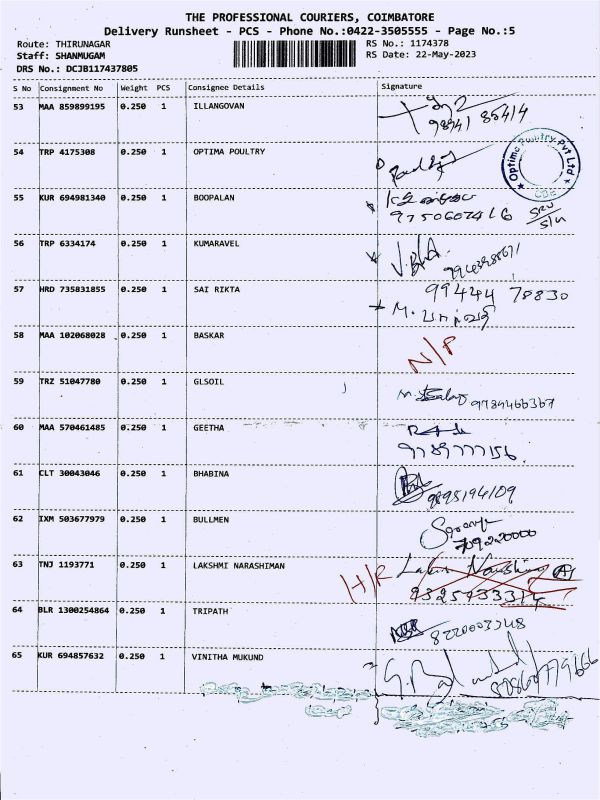 THE PROFESSIONAL COURIERS, COIMBATORE
Delivery Runsheet - PCS - Phone No.:0422-3505555 - Page No.:5
Route: THIRUNAGAR RS No.: 1174378
Staff: SHANMUGAM RS Date: 22-May-2023
DRS No.: DCJB117437805
S No Consignment No Weight PCS Consignee Details Signature
53 MAA 859899195 0.250 1 ILLANGOVAN
54 TRP 4175308 0.250 1 OPTIMA POULTRY
Optima Poultry Pvt Ltd
CBE
55 KUR 694981340 0.250 1 BOOPALAN
9750607416
56 TRP 6334174 0.250 1 KUMARAVEL
57 HRD 735831855 0.250 1 SAI RIKTA 99444 78830
58 MAA 102068028 0.250 1 BASKAR N/P
59 TRZ 51047780 0.250 1 GLSOIL 9789466367
60 MAA 570461485 0.250 1 GEETHA
9789777156
61 CLT 30043046 0.250 1 BHABINA 9895194109
62 IXM 503677979 0.250 1 BULLMEN
709220000
63 TNJ 1193771 0.250 1 LAKSHMI NARASHIMAN
9325733314
64 BLR 1300254864 0.250 1 TRIPATH 8220003348
65 KUR 694857632 0.250 1 VINITHA MUKUND